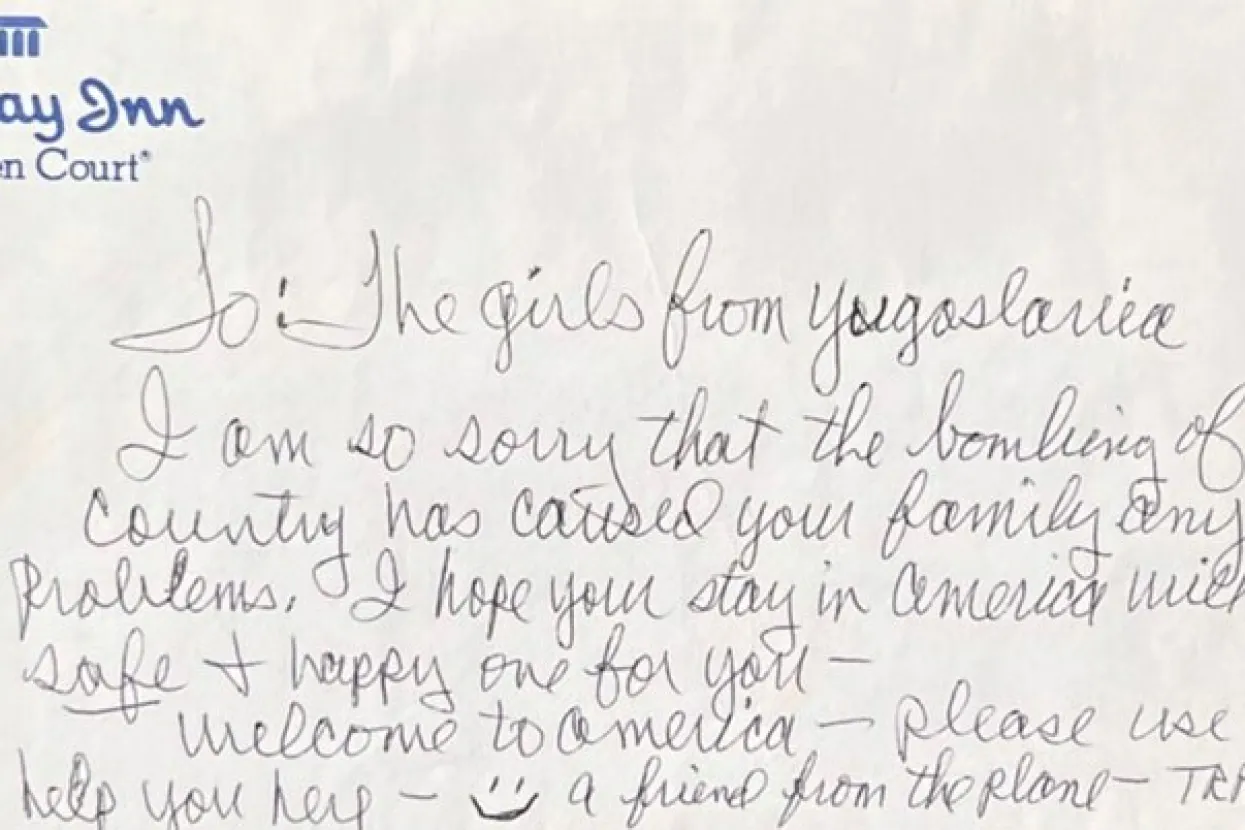 ay Inn
en Court®
To: The girls from Yugoslavia
I am so sorry that the bombing of
Country has caused your family any
Problems. I hope your stay in America will
safe + happy one for you —
Welcome to America — please use
help you here — a friend from the plane —